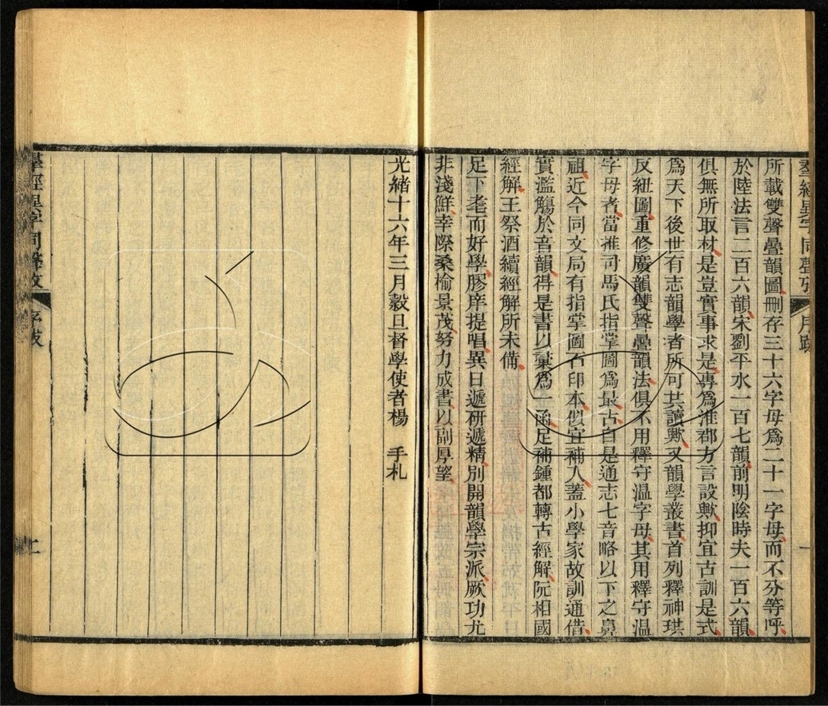 羣經異字同聲攷 序跋 一
所載雙聲疊韻圖刪存三十六字母爲二十一字母而不分等呼
於陸法言二百六韻宋劉平水一百七韻前明陰時夫一百六韻
俱無所取材是豈實事求是專爲淮郡方言設歟抑宜古訓是式
爲天下後世有志韻學者所可共讀歟又韻學叢書首列釋神珙
反紐圖重修廣韻雙聲疊韻法俱不用釋守溫字母其用釋守溫
字母者當推司馬氏指掌圖爲最古自是通志七音略以下之鼻
祖近今同文局有指掌圖石印本似宜補入蓋小學家故訓通借
實濫觴於音韻得是書以彙爲一函足補鍾都轉古經解阮相國
經解王祭酒續經解所未備
足下耄而好學膠庠提唱異日遞研遞精別開韻學宗派厥功尤
非淺鮮幸際桑榆景茂努力成書以副厚望
光緒十六年三月穀旦督學使者楊 手札
羣經異字同聲攷 序跋